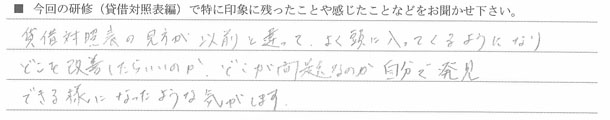 ■ 今回の研修（貸借対照表編）で特に印象に残ったことや感じたことなどをお聞かせ下さい。
貸借対照表の見方が以前と違って、よく頭に入ってくるようになり
どこを改善したらいいのか、どこが問題なのか自分で発見
できる様になったような気がします。